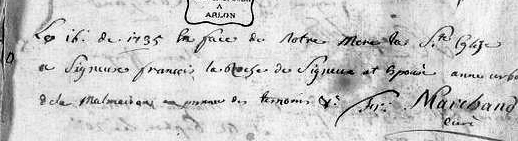 A
ARLON
Le 16: de 1735 En face de Notre Mere la Ste Eglise
a Signeux francois la roche de Signeux at Epousé anne
de la Malmaison en presence des temoins &c:
Marchand
curé